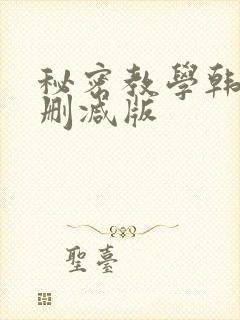 秘密教學韩
删减版
聖臺